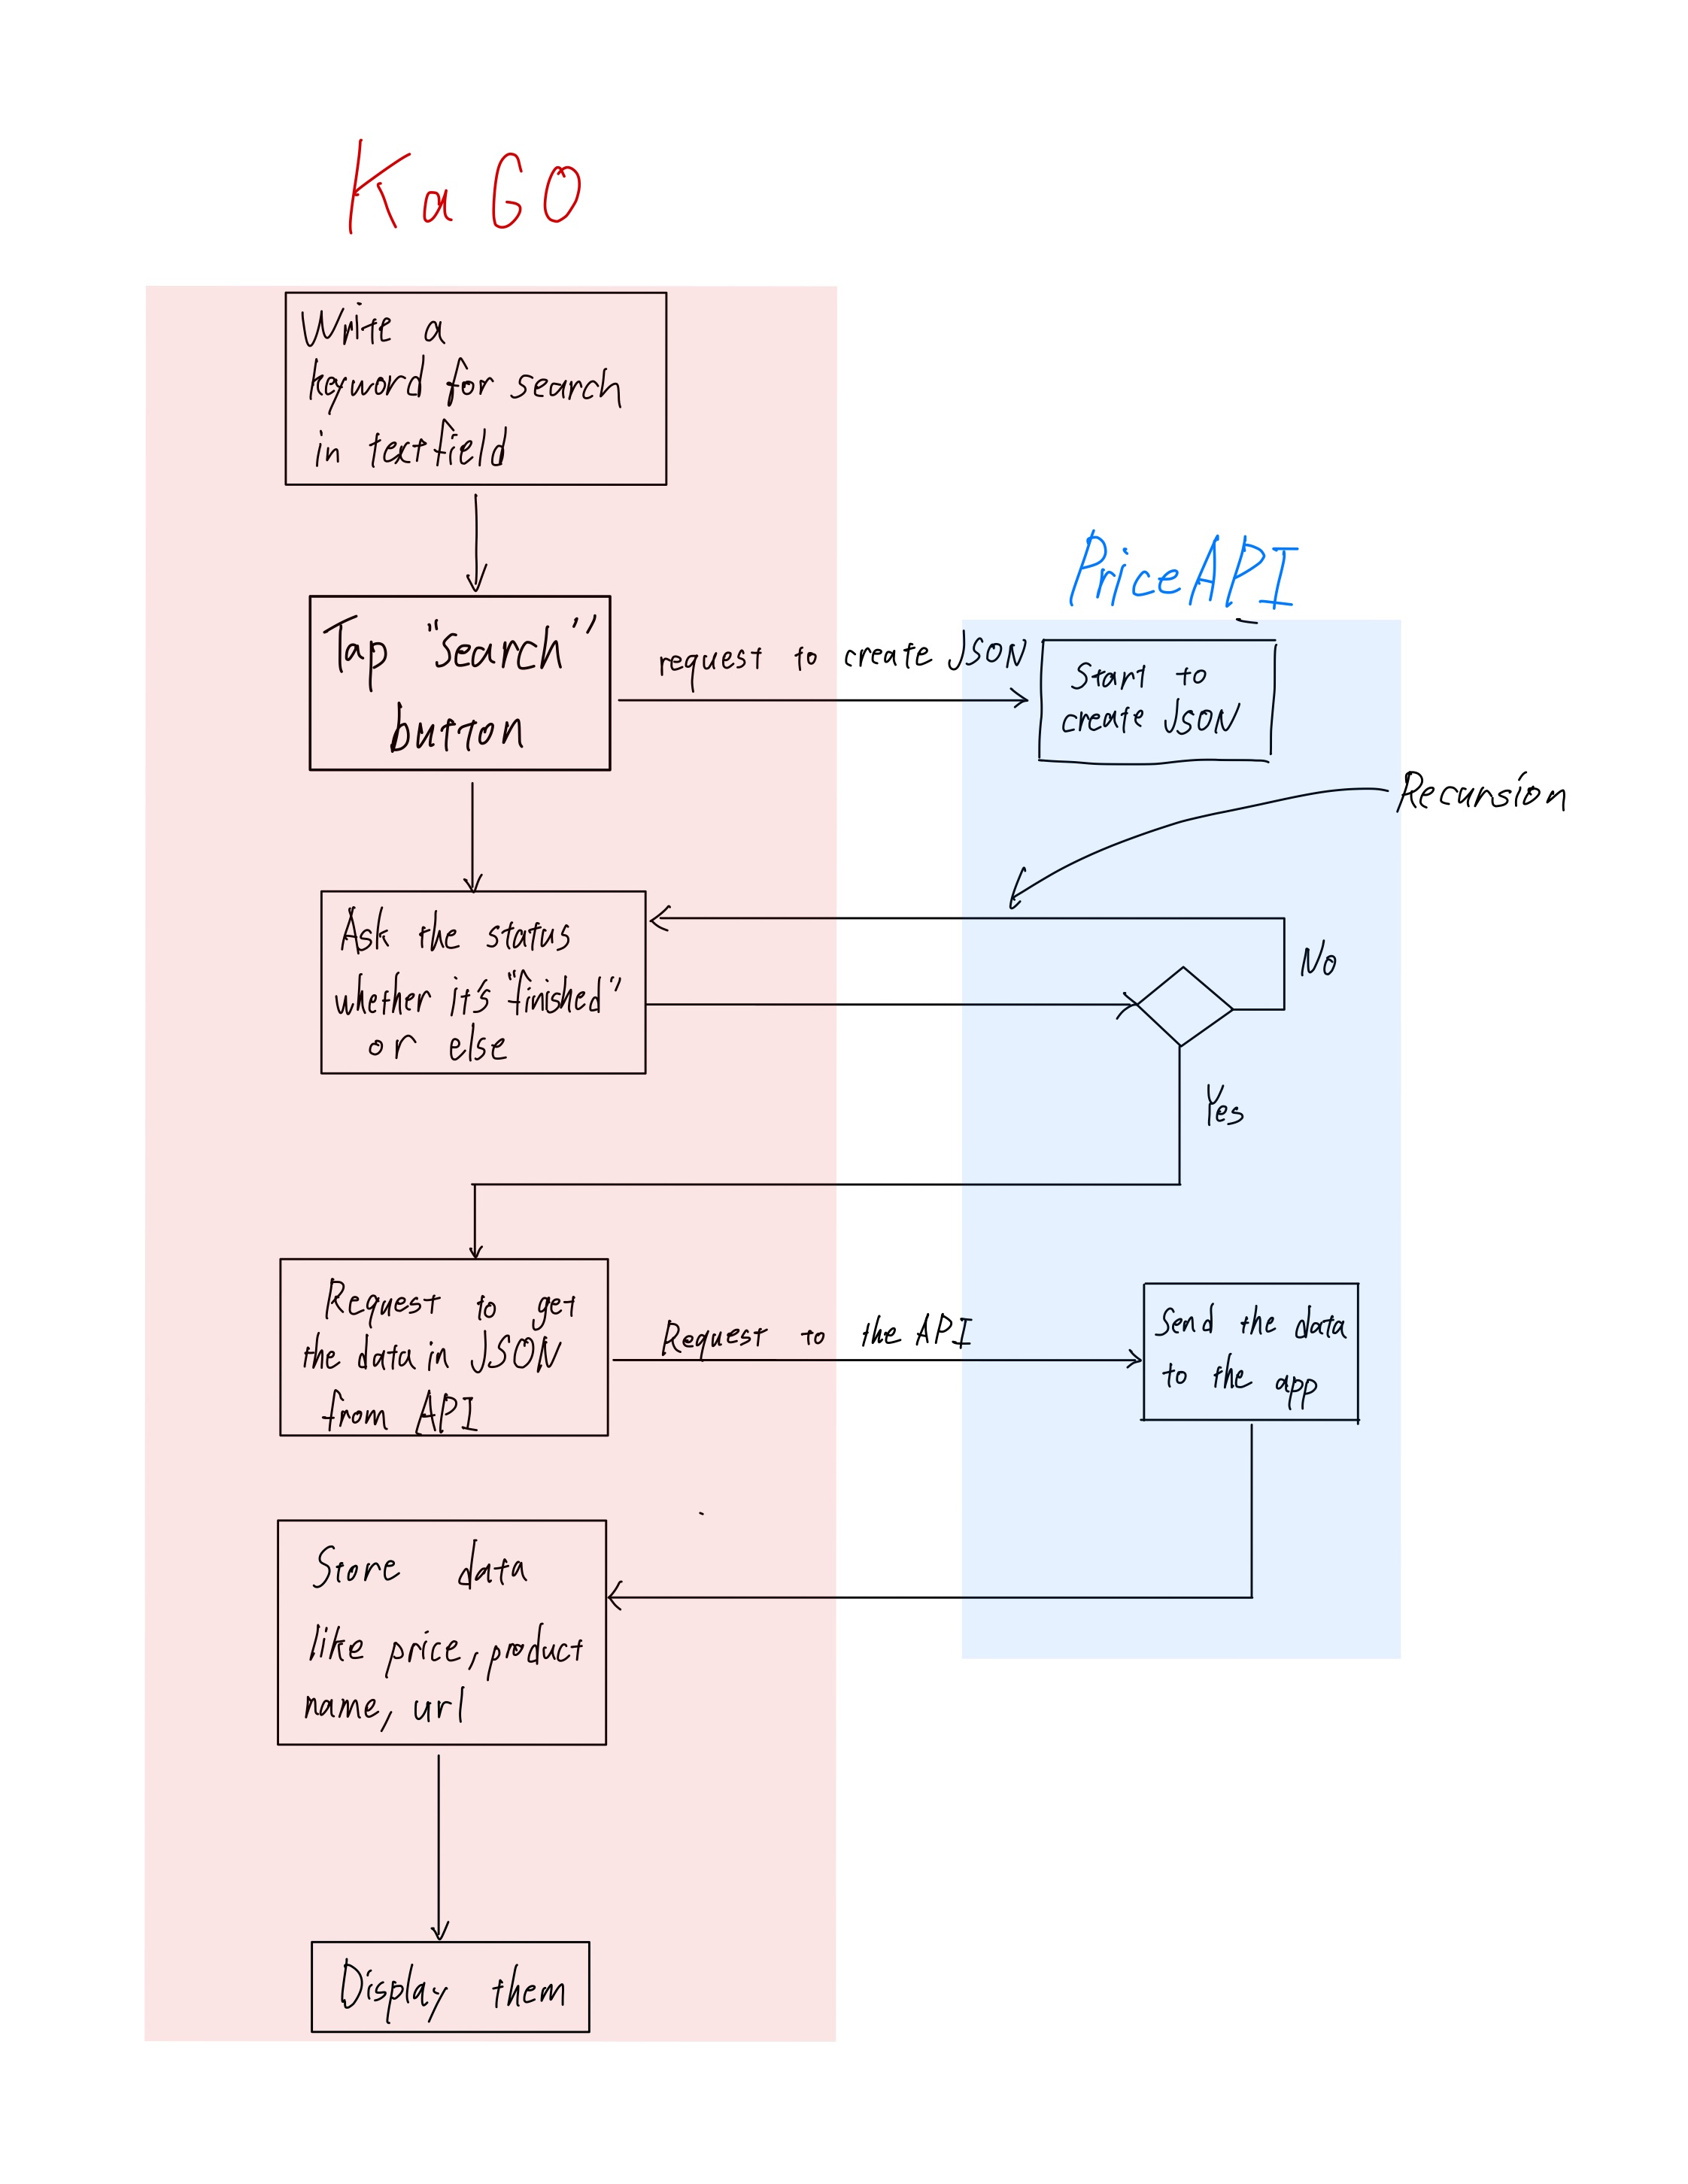 KaGO
Write a
keyword for search
in textfield
PriceAPI
Tap "search"
button
request to create JSON
Start to
create JSON
Recursion
Ask the status
whether it's "finished"
or else
No
Yes
Request to get
the data in JSON
from API
Request to the API
Send the data
to the app
Store data
like price, product
name, url
Display them